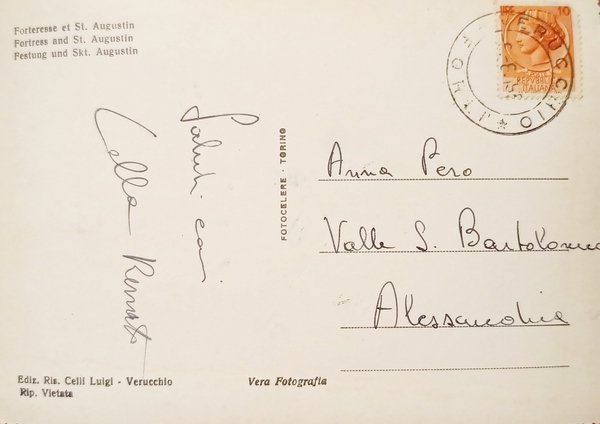 Forteresse et St. Augustin
Fortress and St. Augustin
Festung und Skt. Augustin
Saluti cari
FOTOCELERE · TORINO
10
REPVBBLICA
ITALIANA
Anna Pero
Valle S. Bartolomeo
Alessandria
Ediz. Ris. Celli Luigi - Verucchio
Rip. Vietata
Vera Fotografia